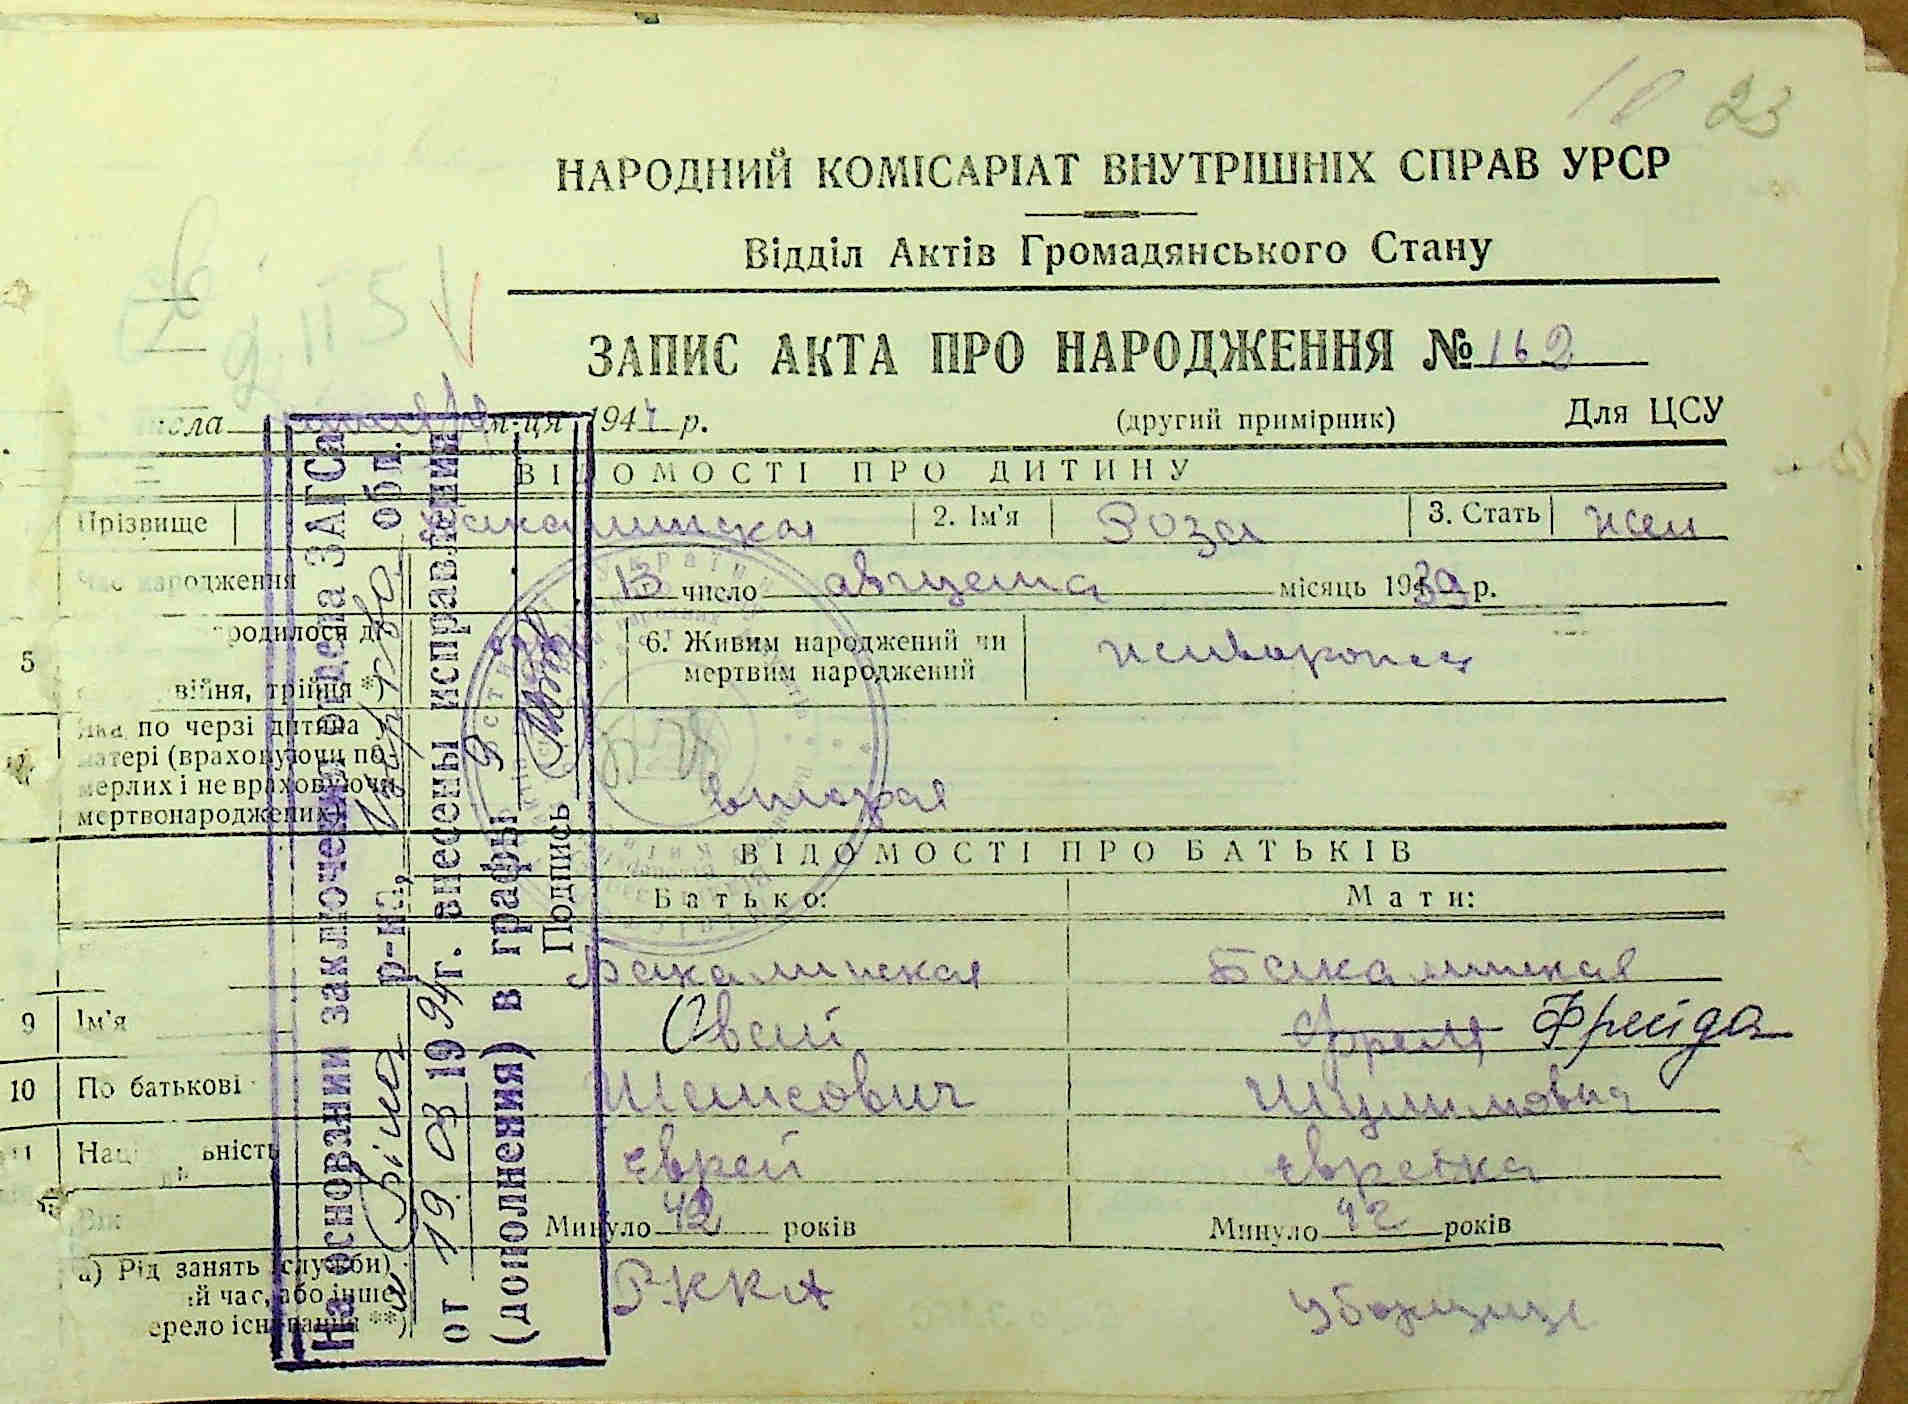 23
НАРОДНИЙ КОМІСАРІАТ ВНУТРІШНІХ СПРАВ УРСР
Відділ Актів Громадянського Стану
ЗАПИС АКТА ПРО НАРОДЖЕННЯ № 162
числа м-ця 1944 р. (другий примірник) Для ЦСУ
ВІДОМОСТІ ПРО ДИТИНУ
Прізвище Бакалинская 2. Ім'я Роза 3. Стать жен
Час народження 13 число августа місяць 1939 р.
5 родилося
війня, трійня *)
6. Живим народжений чи
мертвим народжений
Яка по черзі дитина у
матері (враховуючи по-
мерлих і не враховуючи
мертвонароджених)
вторая
ВІДОМОСТІ ПРО БАТЬКІВ
Батько: Мати:
Бакалинская Бакалинская
9 Ім'я Овсий Фрейда
10 По батькові Шулимовна
11 Національність еврей еврейка
Вік Минуло 42 років Минуло 42 років
а) Рід занять (служби)
й час, або інше
ерело існування **)
РККА Уборщица
На основании заключения отдела ЗАГСа
р-на, обл.
от 19.03 1994 г. внесены исправления
(дополнения) в графы 9
Подпись